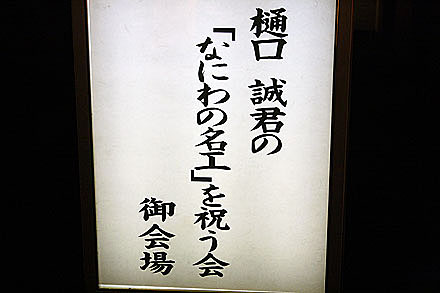 樋口 誠君の
「なにわの名工」を祝う会
御会場